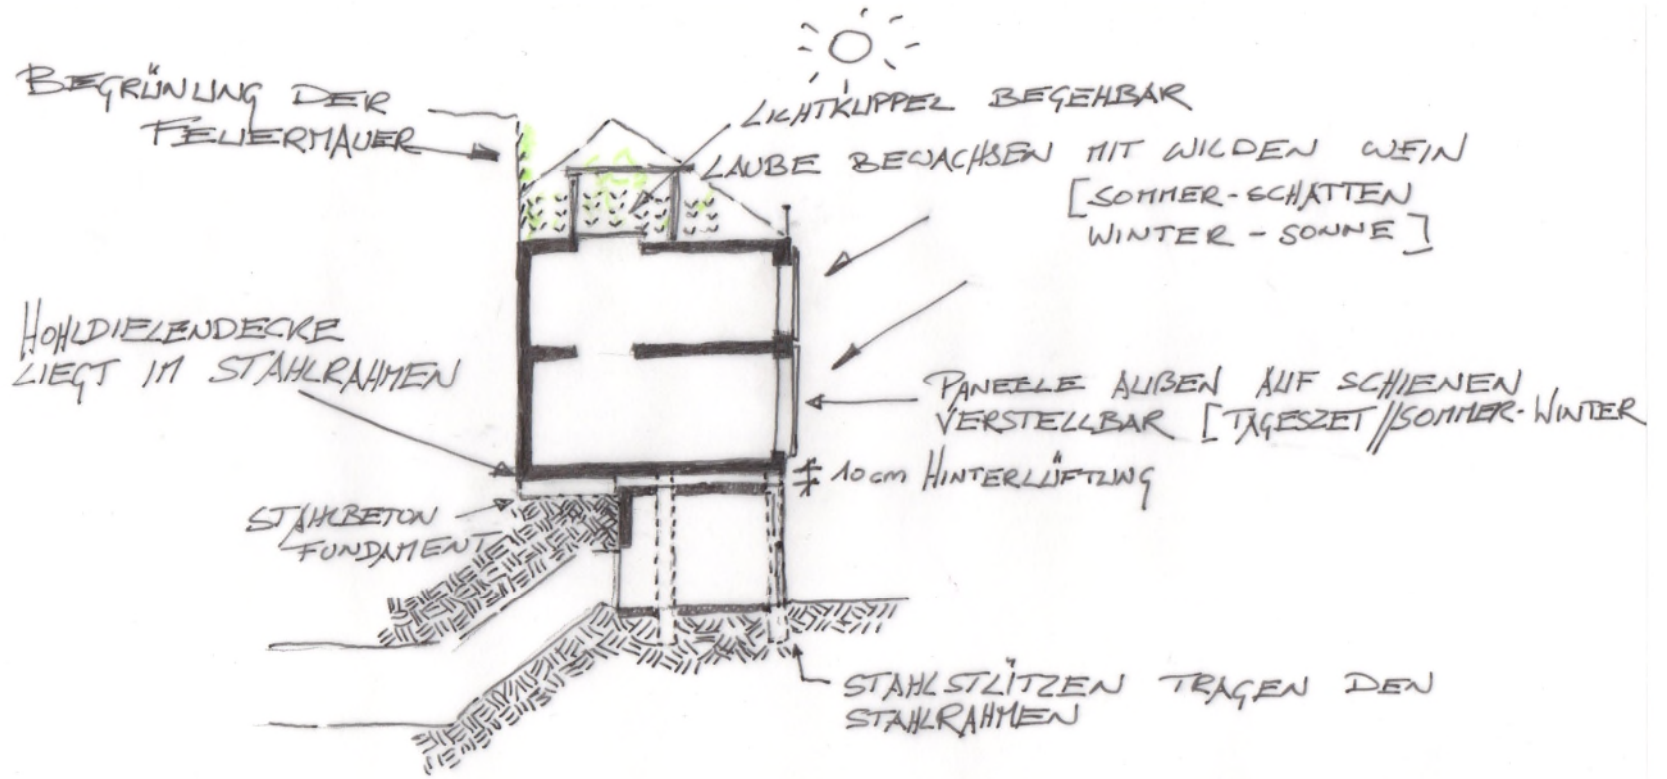 BEGRÜNUNG DER
FEUERMAUER
LICHTKUPPEL BEGEHBAR
LAUBE BEWACHSEN MIT WILDEN WEIN
[SOMMER-SCHATTEN
WINTER-SONNE]
HOHLDIELENDECKE
LIEGT IM STAHLRAHMEN
PANEELE AUßEN AUF SCHIENEN
VERSTELLBAR [TAGESZET//SOMMER-WINTER
10cm HINTERLÜFTUNG
STAHLBETON
FUNDAMENT
STAHLSTÜTZEN TRAGEN DEN
STAHLRAHMEN